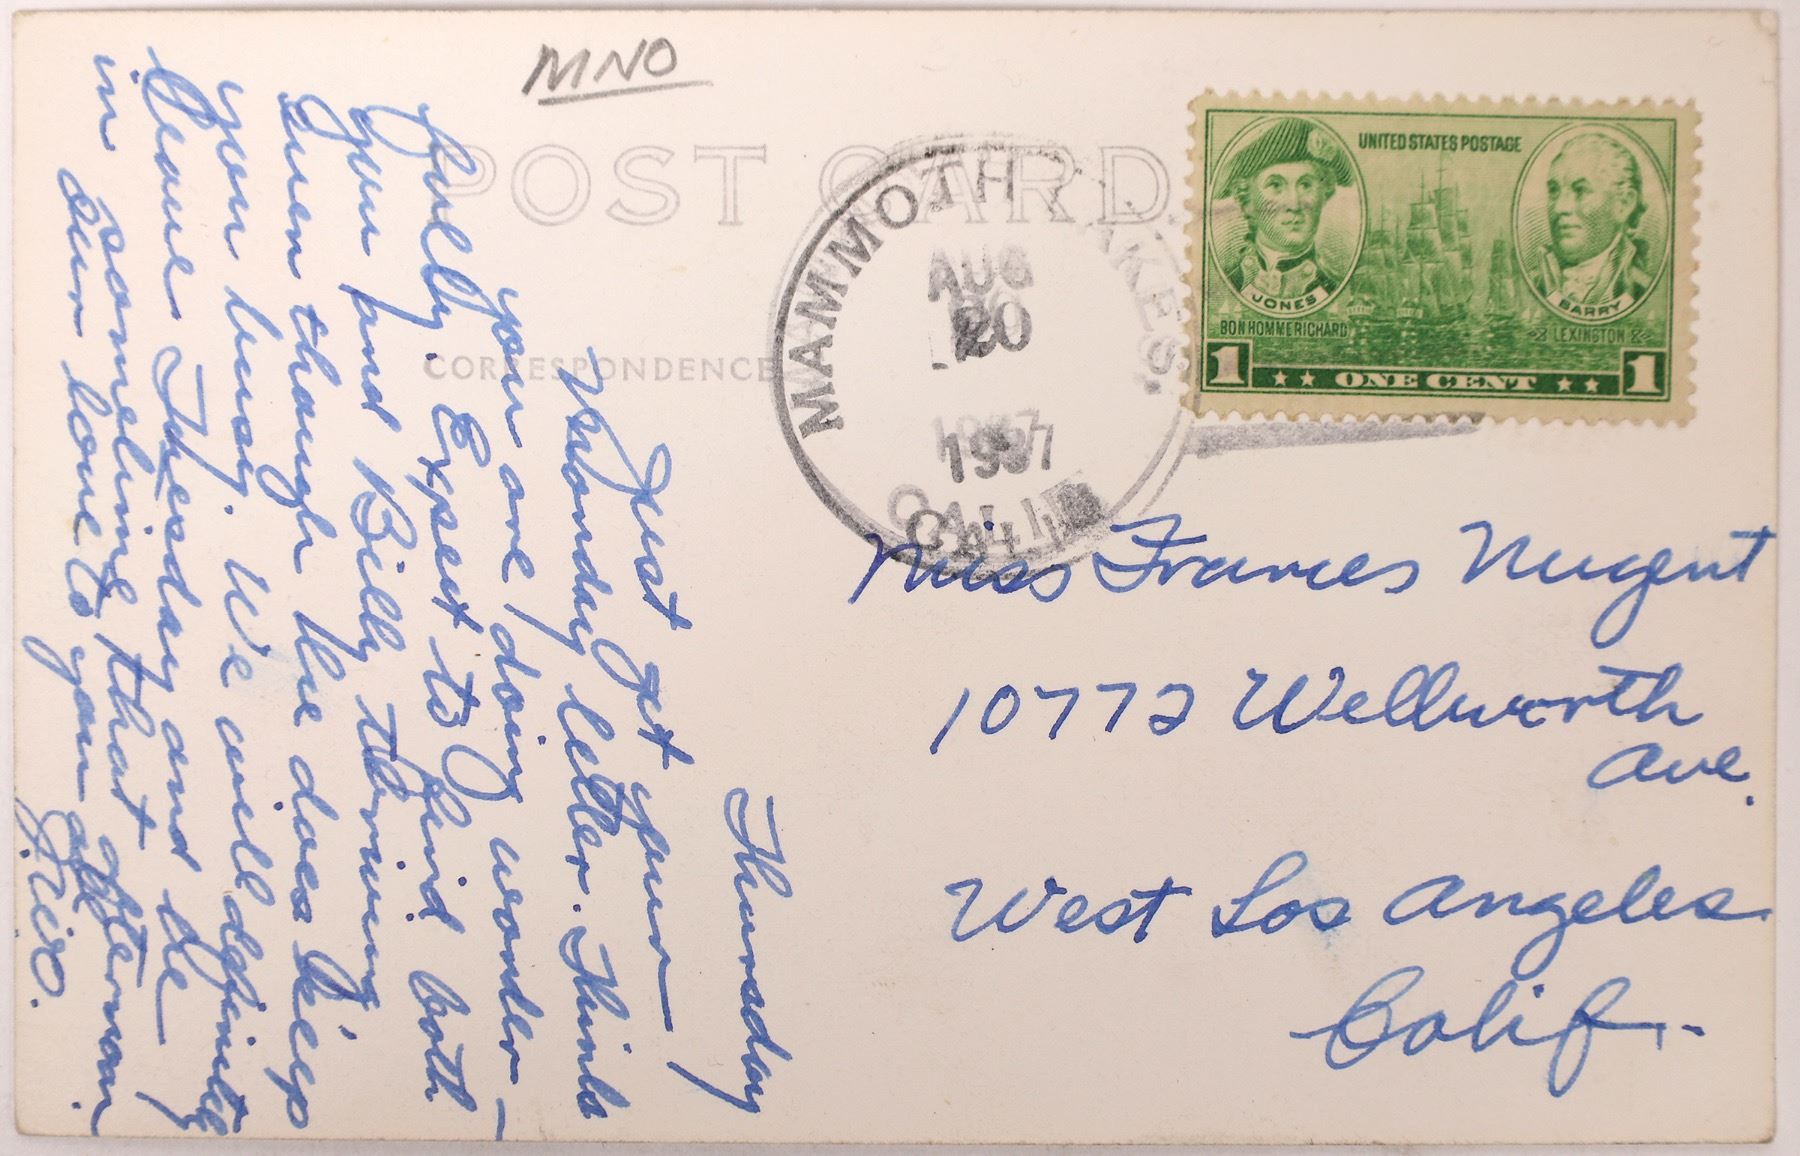 MNO
POST CARD
CORRESPONDENCE
MAMMOTH LAKES.
AUG
20
1937
CALIF.
UNITED STATES POSTAGE
JONES
BARRY
BON HOMME RICHARD
LEXINGTON
1 ONE CENT 1
Thursday
Just got your
Monday letter. Think
you are doing wonder-
fully. Expect to find both
you and Billy thriving
even though he does keep
you busy. We will definitely
leave Thursday and be
in sometime that afternoon.
Our love to you all
Miss Frances Nugent
10772 Wellworth
Ave.
West Los Angeles
Calif.